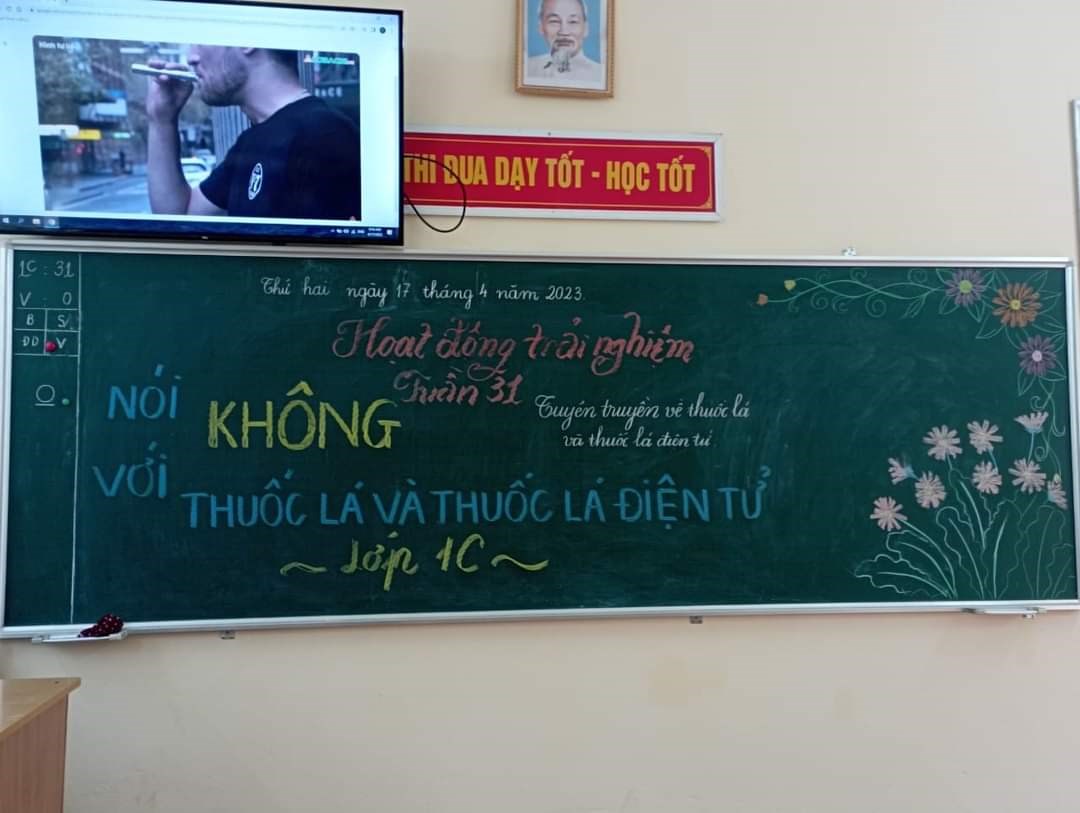 THI ĐUA DẠY TỐT - HỌC TỐT
1C : 31
V : 0
B S
DD V
Thứ hai ngày 17 tháng 4 năm 2023.
Hoạt động trải nghiệm
Tuần 31
Tuyên truyền về thuốc lá
và thuốc lá điện tử.
NÓI
KHÔNG
VỚI
THUỐC LÁ VÀ THUỐC LÁ ĐIỆN TỬ
~ Lớp 1C ~